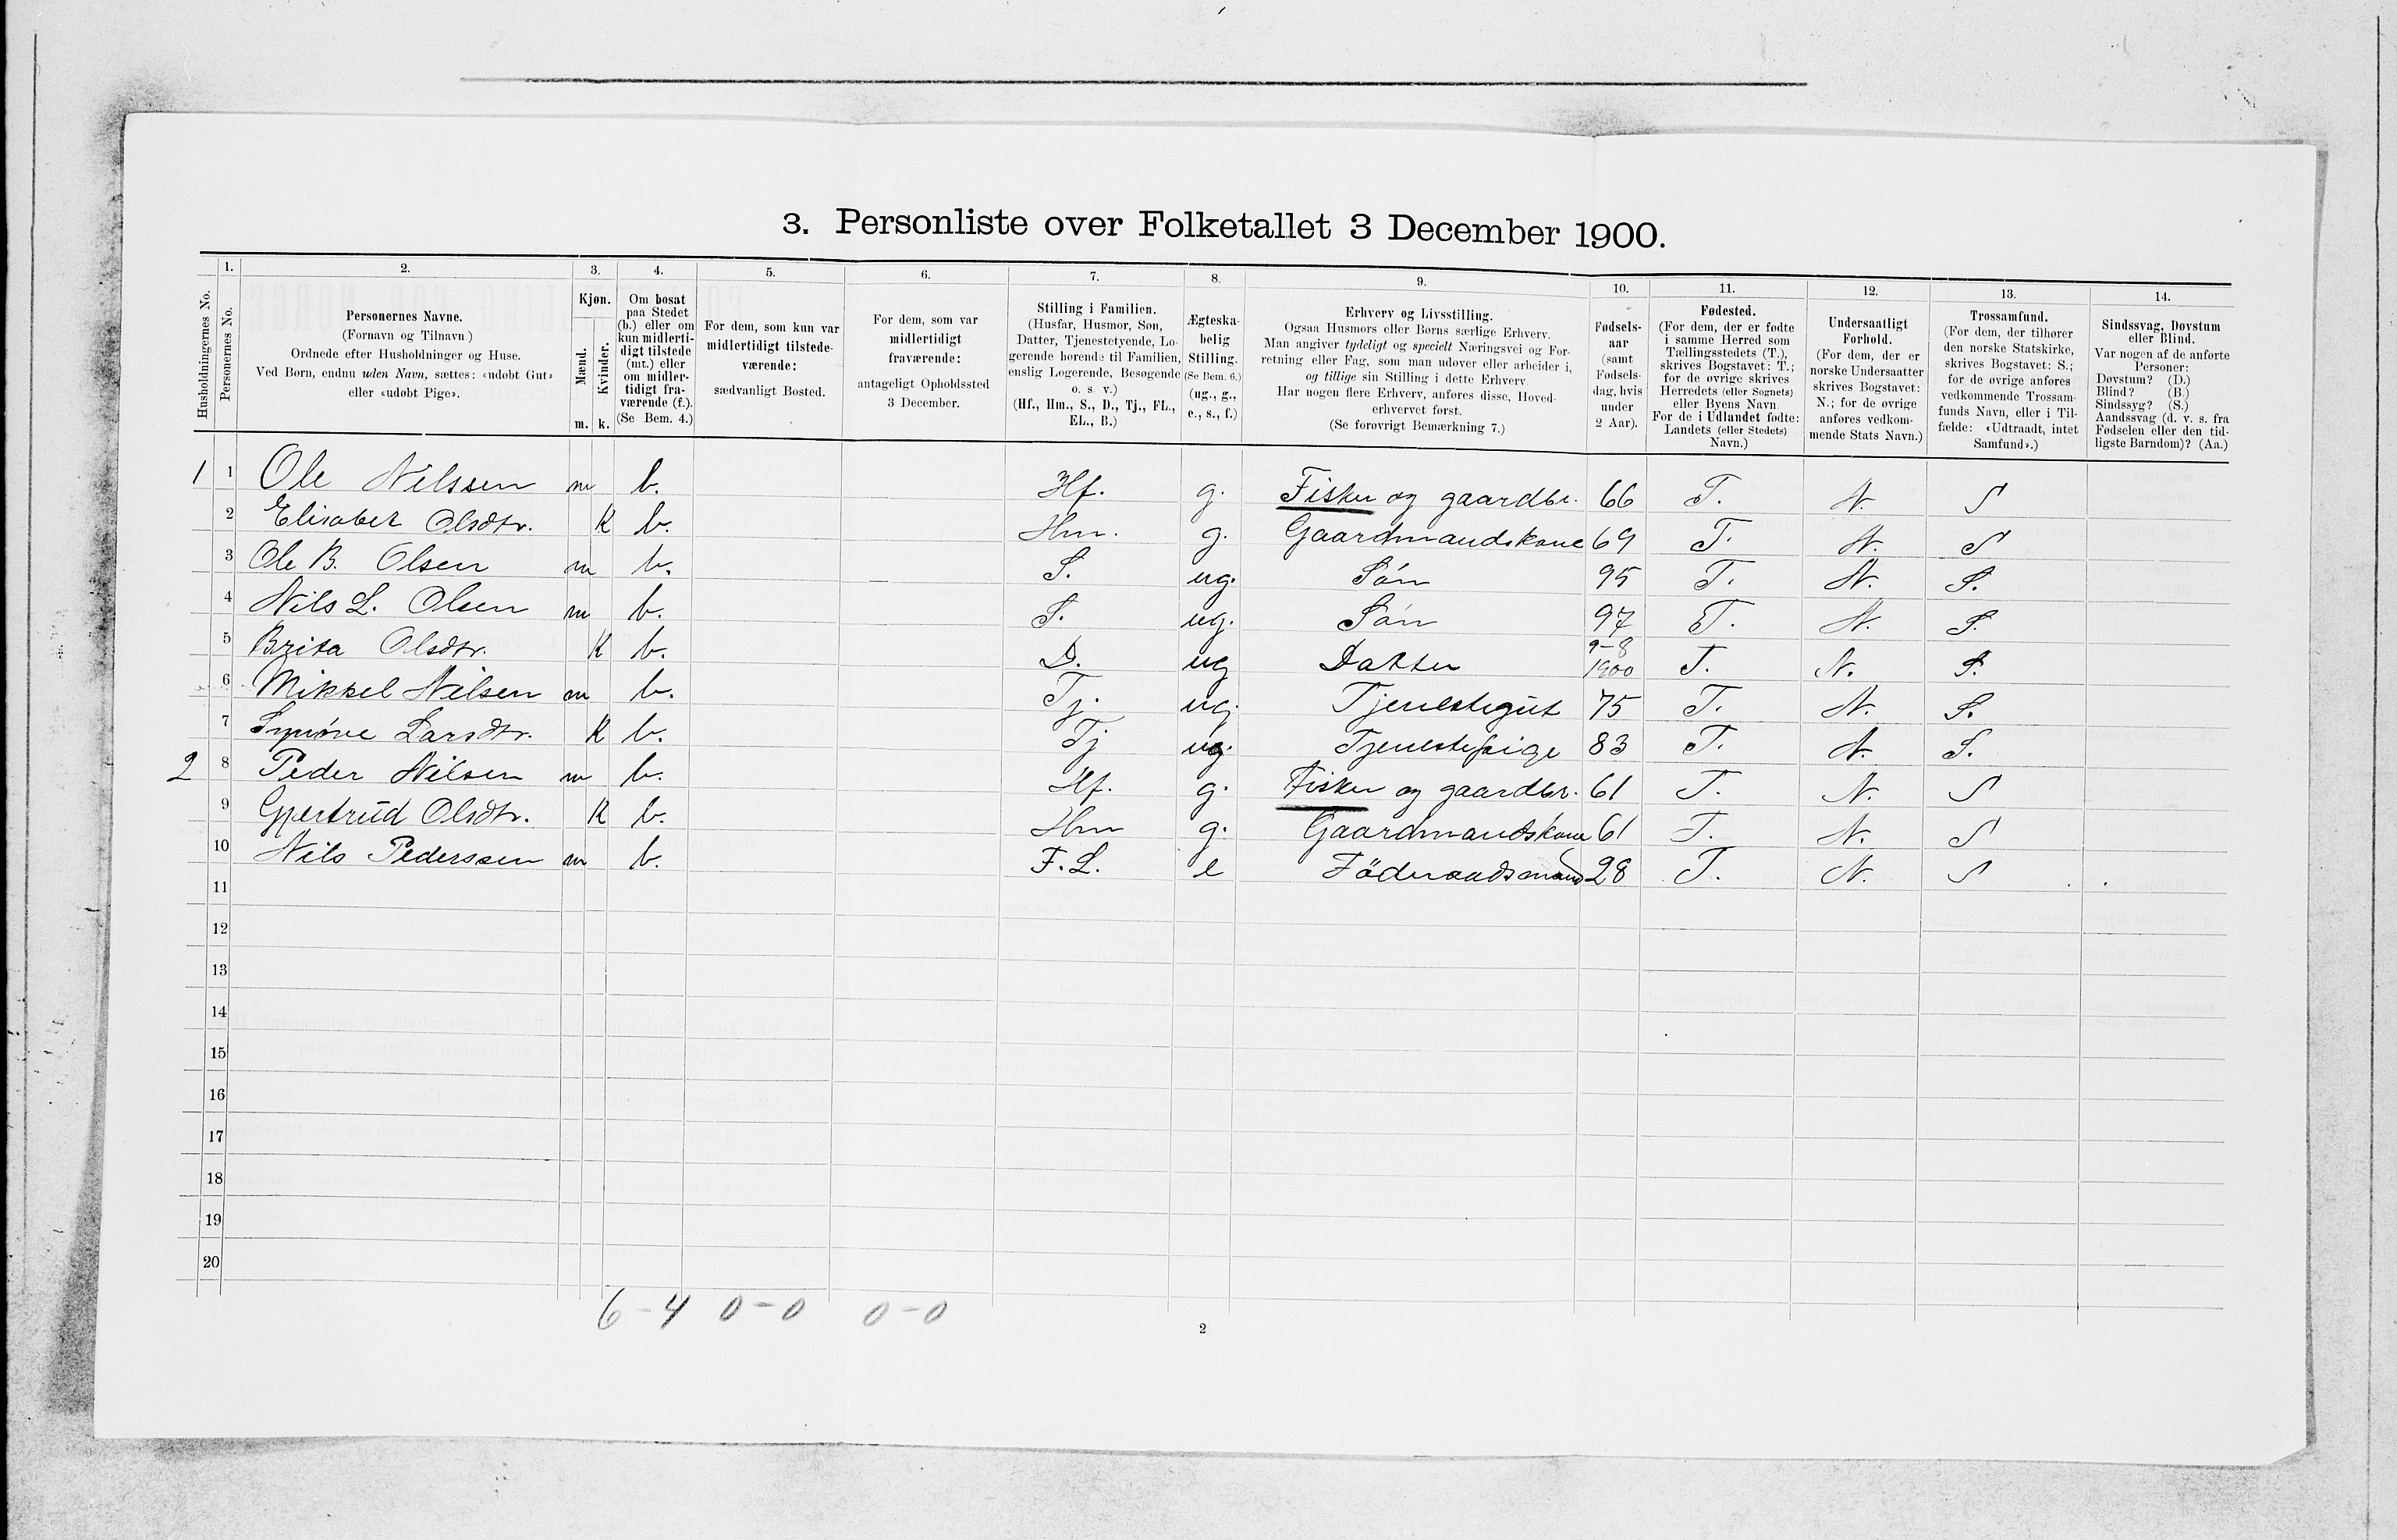 3. Personliste over Folketallet 3 December 1900.
1. 2. 3. 4. 5. 6. 7. 8. 9. 10. 11. 12. 13. 14.
Husholdningernes No.
Personernes No.
Personernes Navne.
(Fornavn og Tilnavn)
Ordnede efter Husholdninger og Huse.
Ved Børn, endnu uden Navn, sættes: «udøbt Gut»
eller «udøbt Pige».
Kjøn.
Mænd.
Kvinder.
m. k.
Om bosat
paa Stedet
(b.) eller om
kun midlerti-
digt tilstede
(mt.) eller
om midler-
tidigt fra-
værende (f.).
(Se Bem. 4.)
For dem, som kun var
midlertidigt tilstede-
værende:
sædvanligt Bosted.
For dem, som var
midlertidigt
fraværende:
antageligt Opholdssted
3 December.
Stilling i Familien.
(Husfar, Husmor, Søn,
Datter, Tjenestetyende, Lo-
gerende hørende til Familien,
enslig Logerende, Besøgende
o. s. v.)
(Hf., Hm., S., D., Tj., FL.,
EL., B.)
Ægteska-
belig
Stilling.
(Se Bem. 6.)
(ug., g.,
e., s., f.)
Erhverv og Livsstilling.
Ogsaa Husmors eller Børns særlige Erhverv.
Man angiver tydeligt og specielt Næringsvei og For-
retning eller Fag, som man udøver eller arbeider i,
og tillige sin Stilling i dette Erhverv.
Har nogen flere Erhverv, anføres disse, Hoved-
erhvervet først.
(Se forøvrigt Bemærkning 7.)
Fødsels-
aar
(samt
Fødsels-
dag, hvis
under
2 Aar).
Fødested.
(For dem, der er fødte
i samme Herred som
Tællingsstedets (T.),
skrives Bogstavet: T.;
for de øvrige skrives
Herredets (eller Sognets)
eller Byens Navn.
For de i Udlandet fødte:
Landets (eller Stedets)
Navn.)
Undersaatligt
Forhold.
(For dem, der er
norske Undersaatter
skrives Bogstavet:
N.; for de øvrige
anføres vedkom-
mende Stats Navn.)
Trossamfund.
(For dem, der tilhører
den norske Statskirke,
skrives Bogstavet: S.;
for de øvrige anføres
vedkommende Trossam-
funds Navn, eller i Til-
fælde: «Udtraadt, intet
Samfund».)
Sindssvag, Døvstum
eller Blind.
Var nogen af de anførte
Personer:
Døvstum? (D.)
Blind? (B.)
Sindssyg? (S.)
Aandssvag (d. v. s. fra
Fødselen eller den tid-
ligste Barndom)? (Aa.)
1 1 Ole Nilssen m b. Hf. g. Fisker og gaardbr. 66 T. N. S
2 Elisabet Olsdtr. K b. Hm. g. Gaardmandskone 69 T. N. S
3 Ole B. Olsen m b. S. ug. Søn 95 T. N. S.
4 Nils L. Olsen m b. S. ug. Søn 97 T. N. S.
5 Brita Olsdtr. K b. D. ug Datter 9-8 1900 T. N. S.
6 Mikkel Nilsen m b. Tj. ug. Tjenestegut 75 T. N. S.
7 Synøve Larsdtr. K b. Tj ug. Tjenestepige 83 T. N. S.
2 8 Peder Nilsen m b. Hf. g. Fisker og gaardbr. 61 T. N. S
9 Gjertrud Olsdtr. K b. Hm g. Gaardmandskone 61 T. N. S
10 Nils Pederssen m b. F.L. e Föderaadsmand 28 T. N. S
11
12
13
14
15
16
17
18
19
20
6-4 0-0 0-0
2